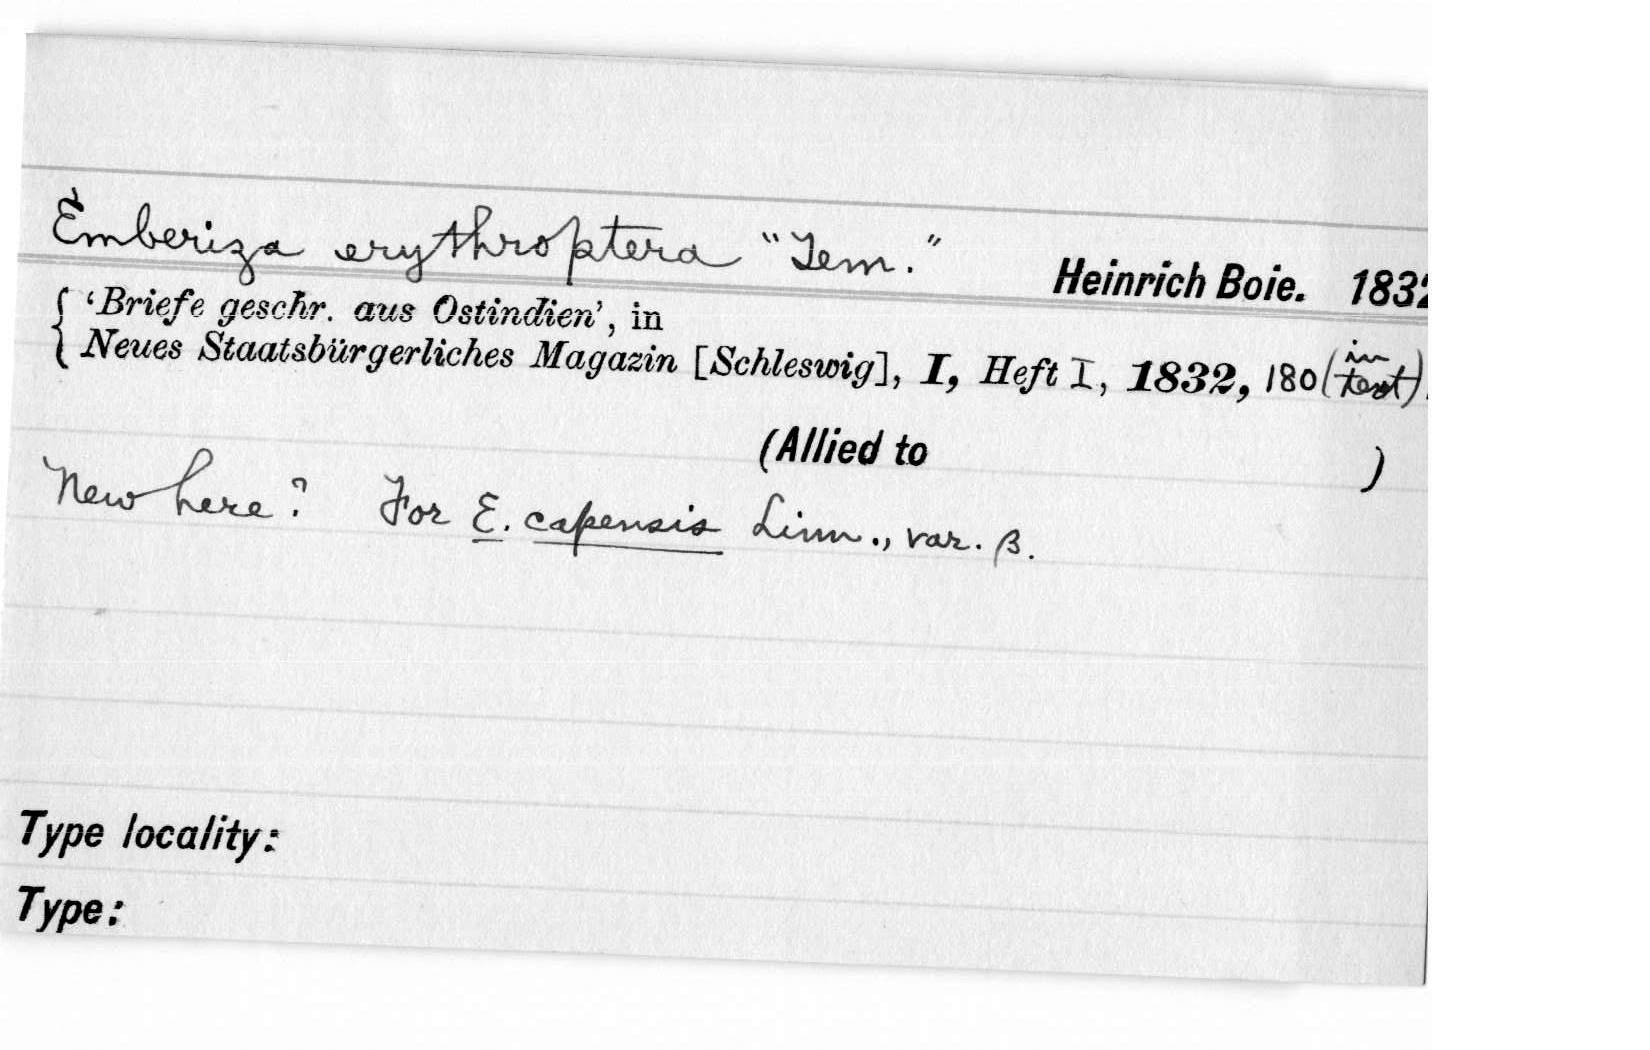 Emberiza erythroptera "Tem." Heinrich Boie. 1832
'Briefe geschr. aus Ostindien', in
Neues Staatsbürgerliches Magazin [Schleswig], I, Heft I, 1832, 180 (in text).
(Allied to )
New here? For E. capensis Linn., var. β.
Type locality:
Type: